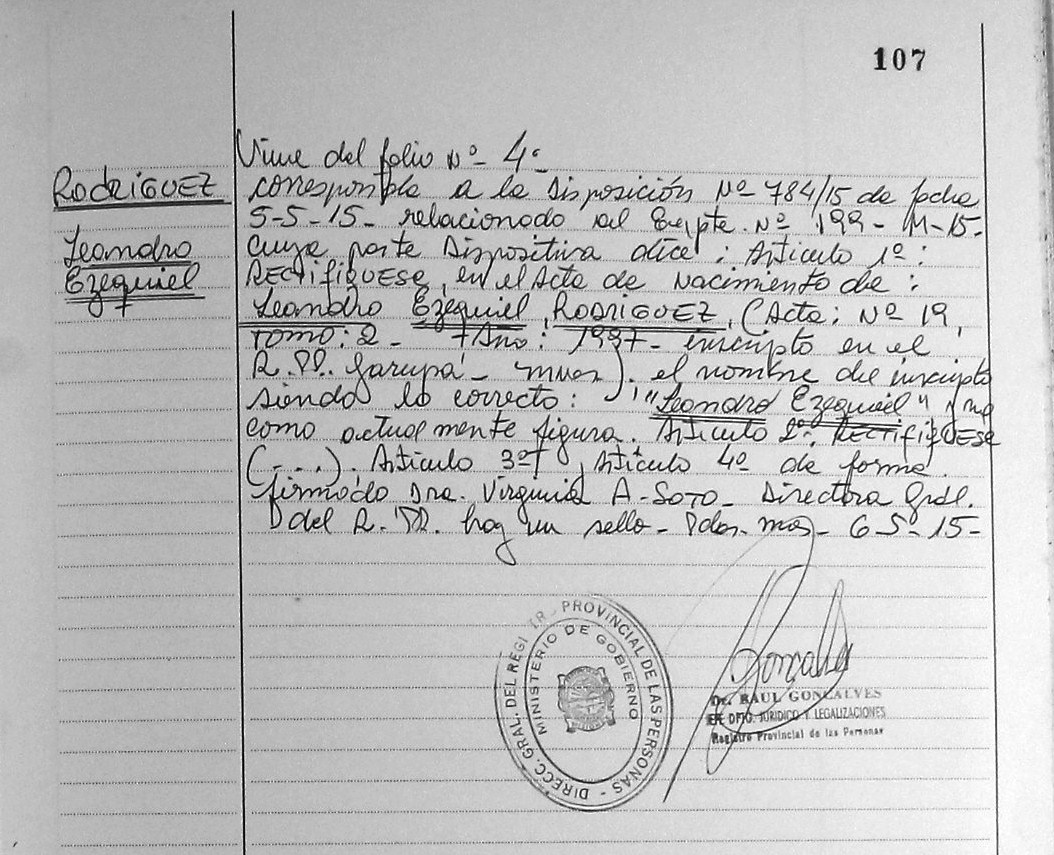 107
RODRIGUEZ
Leandro
Ezequiel
Viene del folio Nº 4.
corresponde a la Disposición Nº 784/15 de fecha
5-5-15- relacionado al Expte. Nº 199- M-15-
cuya parte Dispositiva dice: Artículo 1º:
RECTIFIQUESE, en el Acta de Nacimiento de:
Leandro Ezequiel RODRIGUEZ, (Acta: Nº 19,
Tomo: 2- Año: 1997- inscripto en el
R.PP. Garupá- Mnes). el nombre del inscripto
siendo lo correcto: "Leandro Ezequiel" y no
como actualmente figura. Artículo 2º: RECTIFIQUESE
(...). Artículo 3º y Artículo 4º de forma.
firmado Dra. Virginia A. SOTO- Directora Gral.
del R.PP. hay un sello- Pdas. Mnes- 6-5-15-
DIRECC. GRAL. DEL REGISTR. PROVINCIAL DE LAS PERSONAS -
MINISTERIO DE GOBIERNO
Gonçalves
Dr. RAUL GONCALVES
DPTO. JURIDICO Y LEGALIZACIONES
Registro Provincial de las Personas